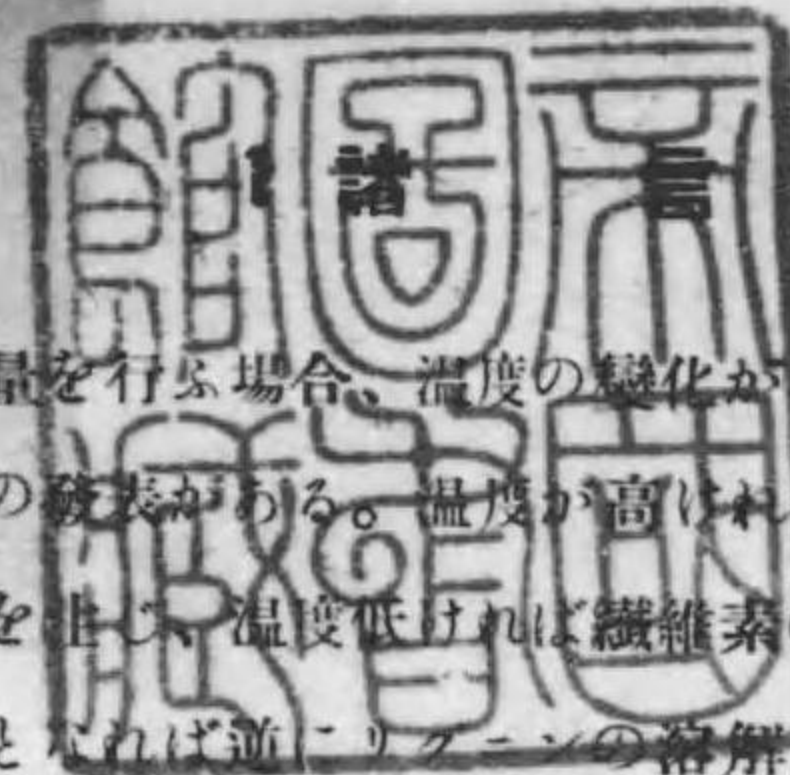 諸言
量を行ふ場合、温度の變化が
の發表がある。温度が高けれ
を生じ、温度低ければ纎維素
となれば逆にリグニンの溶解
帝國
圖書
館藏